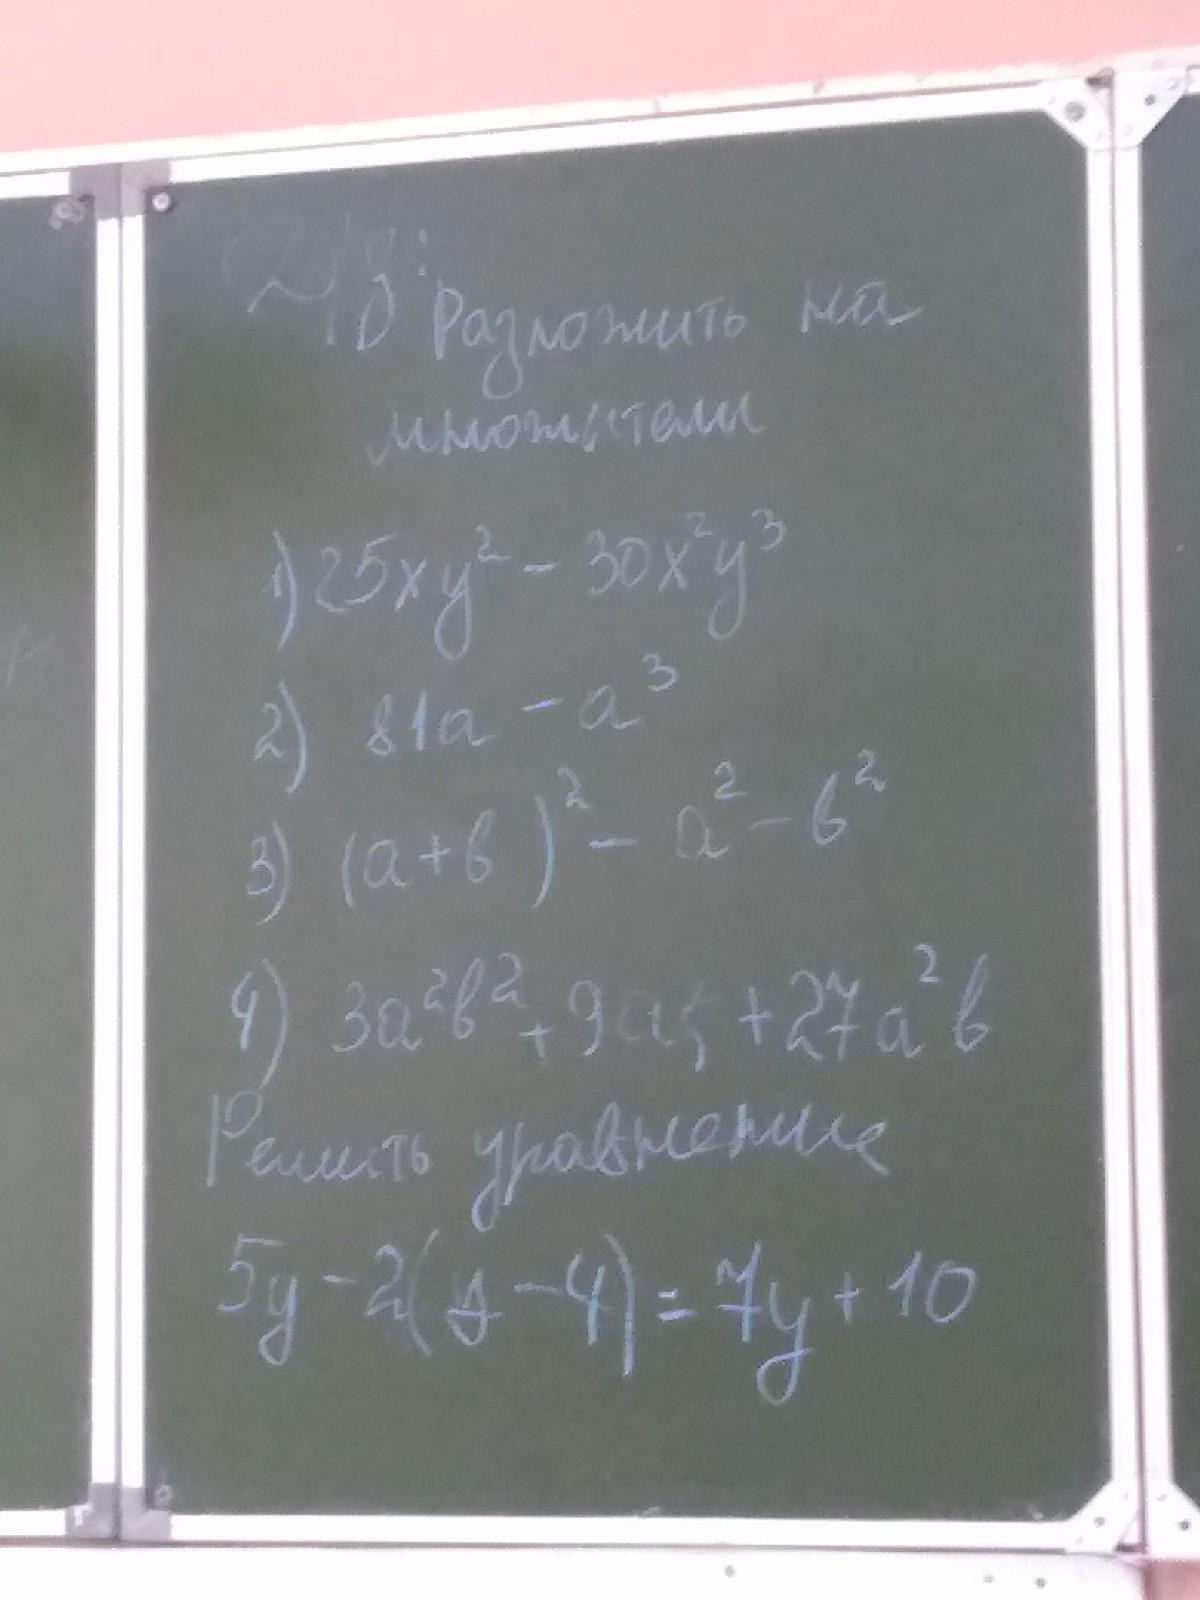 Д/З: Разложить на
множители
1) 25xy² - 30x²y³
2) 81a - a³
3) (a+b)² - a² - b²
4) 3a²b² + 9a + 27a²b
Решить уравнение
5y - 2(y - 4) = 7y + 10